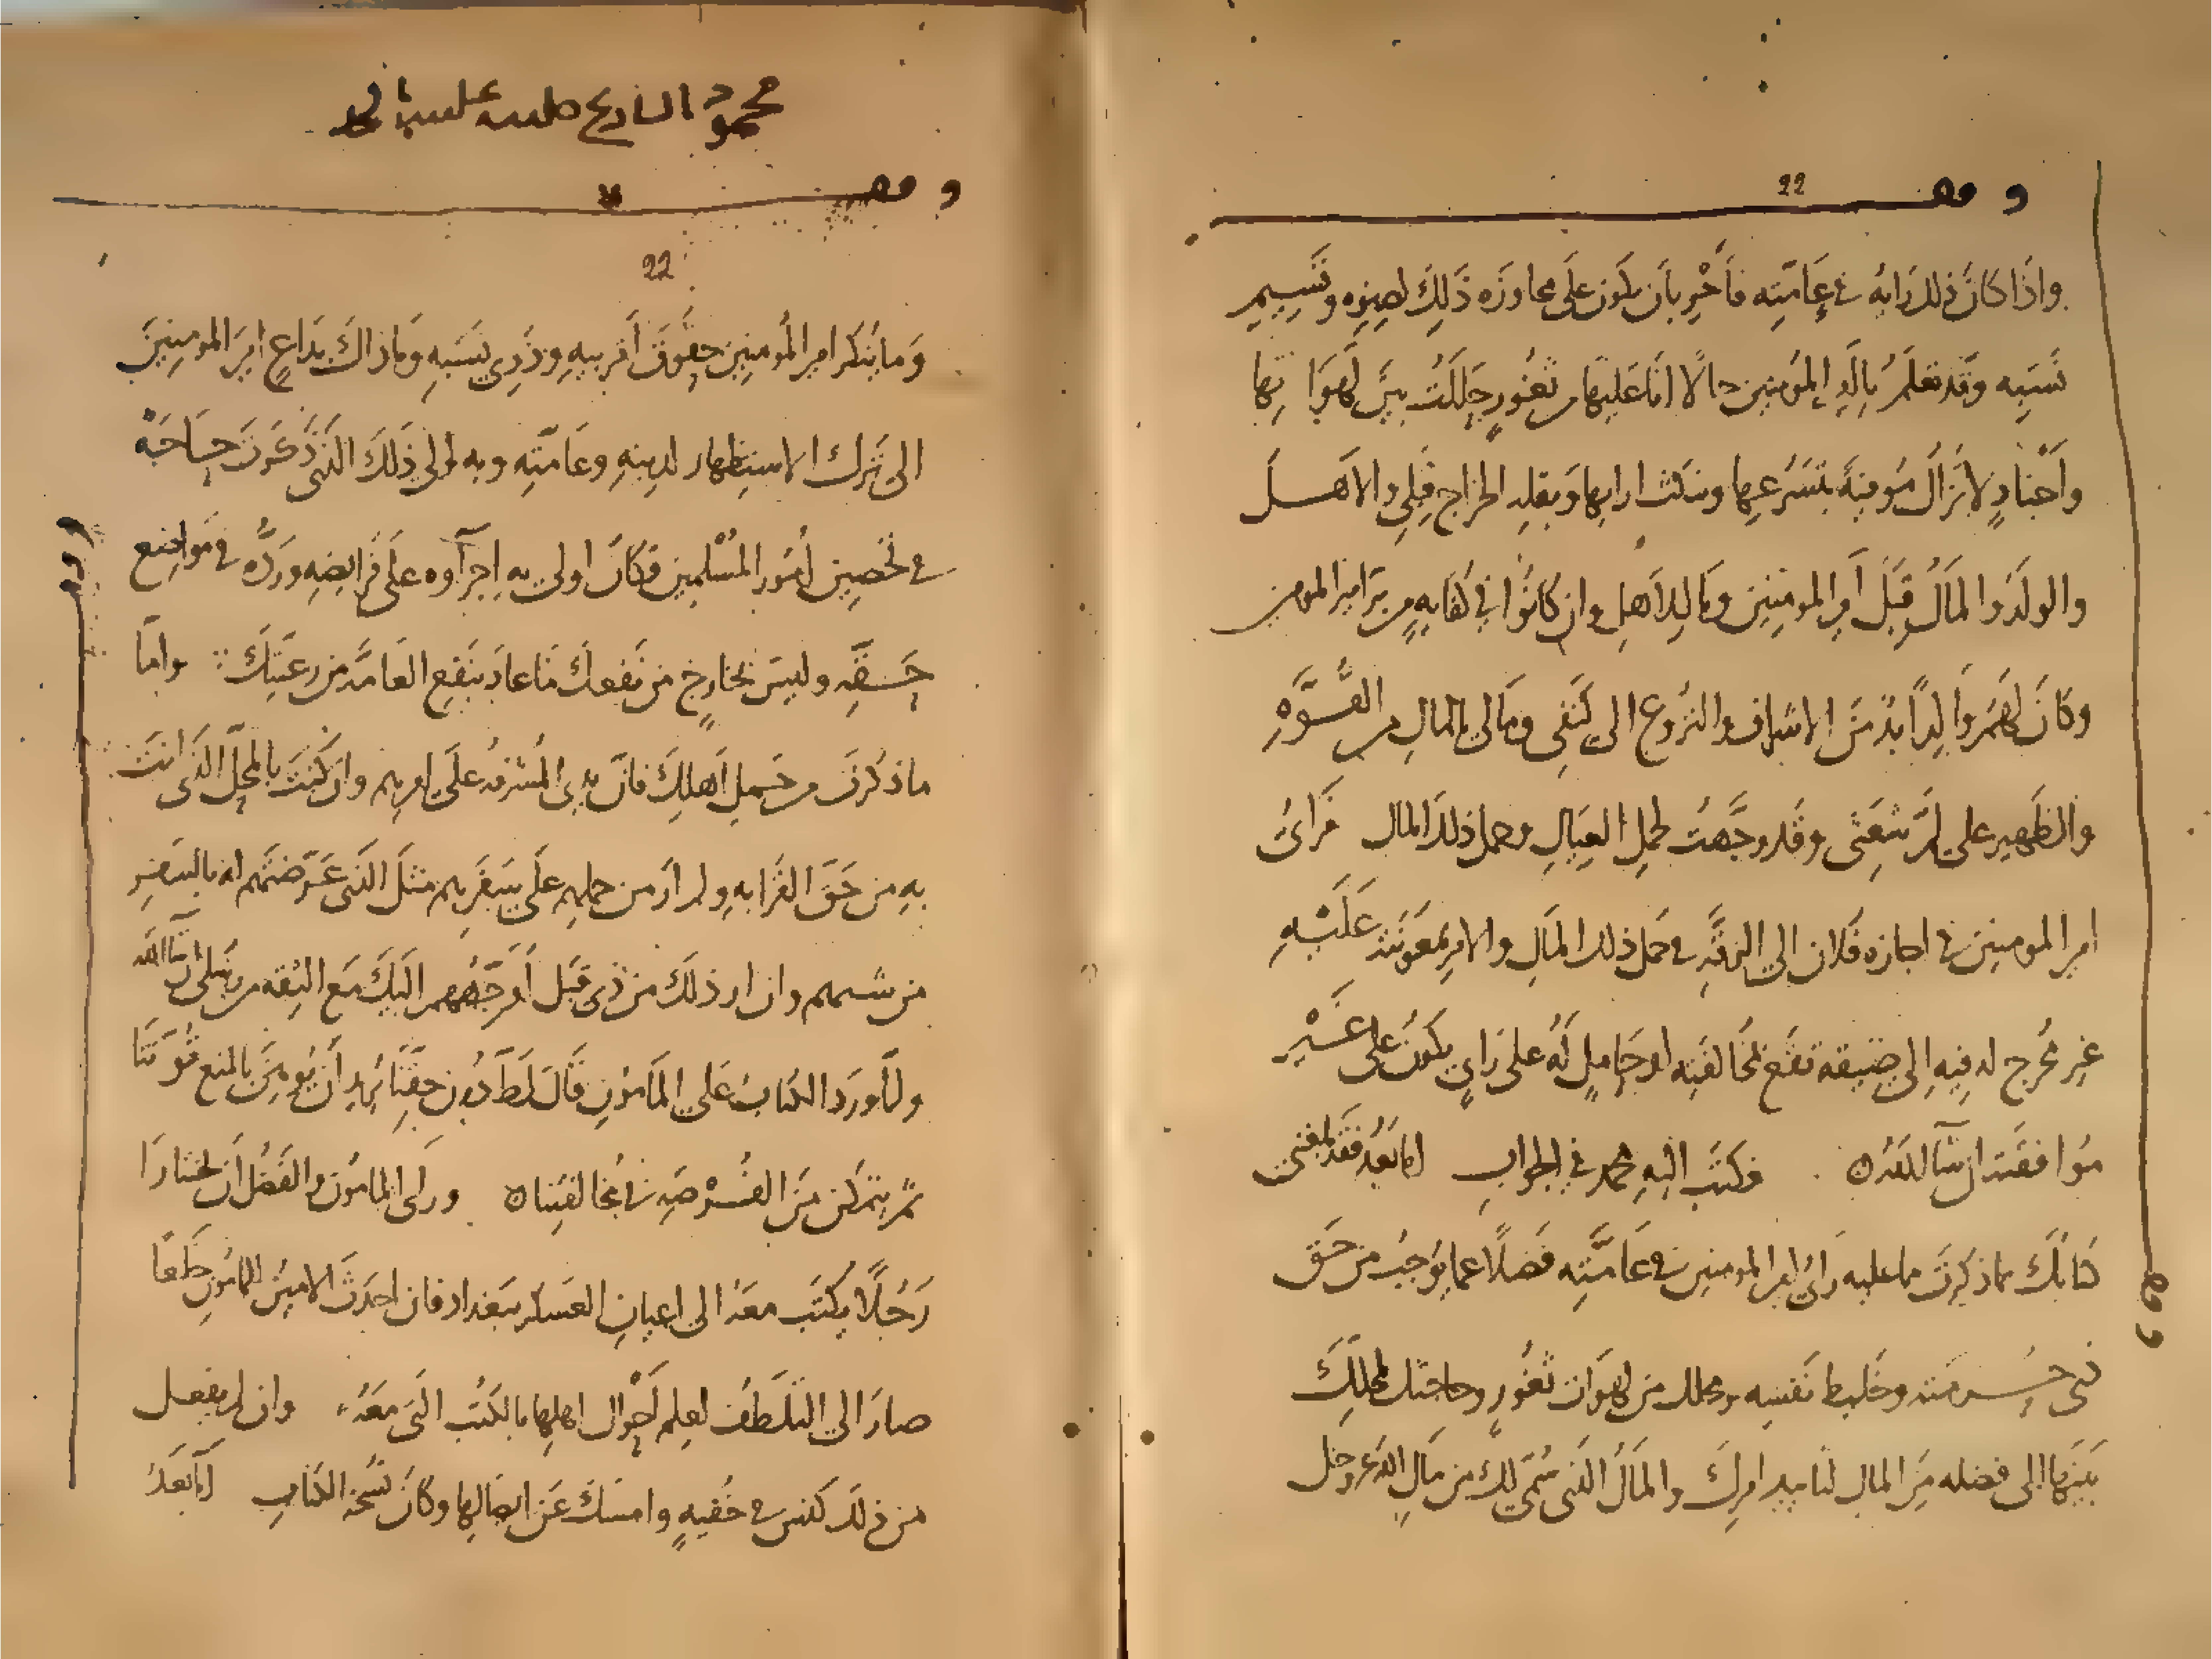 وقف
22
واذا كان ذلك رايه في عامته فاحر بان يكون على مجاوزه ذلك لصنوه وقسيم
نسبه وقد تعلم يا امير المومنين حالا انا عليها من ثغور حللت بين لهواتها
واجناد لا تزال موقنة بنشر غيها وبنكث ارايها وبقله الخراج قبلي والاهل
والولد والمال قبل امير المومنين وما للاهل وان كانوا في كفايه من بر امير المومنين
وكان لهم والدا بد من الاشراف والنزوع الى كنفي ومالي بالمال من القوه
والظهير على لم شعثي وقد وجهت لحمل العيال وحمل ذلك المال فراي
امير المومنين في اجازه فلان الى الرقه في حمل ذلك المال والامر بمعونته عليه
غير محرج له فيه الى ضيقه تقع بمخالفته او حامل له على راي يكون على غير
موافقته ان شا الله ه فكتب اليه محمد في الجواب اما بعد فقد بلغني
كتابك بما ذكرت مما عليه راي امير المومنين في عامته فضلا عما يوجب من حق
ذي حرمته وخليط نفسه ومحلك من لهوات ثغور وحاجتك لمحلك
بينها الى فضله من المال لتاييد امرك والمال الذي سمي لك من مال الله عز وجل
وقف
22
وما ينكر امير المومنين حقوق اقربيه وذوي نسبه وما ذاك بداع امير المومنين
الى ترك الاستظهار لدينه وعامته وبه الى ذلك الذي ذكرت حاجة
في تحصين امور المسلمين فكان اولى به اجراوه على فرايضه ورده في مواضع
حقه وليس بخارج من نفعك ما عاد بنفع العامه من رعيتك واما
ما ذكرت من حمل اهلك فان بدي المشرفه على امرهم وان كنت بالمحل الذي انت
به من حق القرابه ولم ار من حملهم على سفرهم مثل الذي عرضتهم له بالسفر
من شتتهم وان ار ذلك من ذي قبل اوجههم اليك مع الثقه من رسلي ان شا الله
ولما ورد الكتاب على المامون قال لط دون حقنا يريد ان يوهن بالمنع قوتنا
ثم يتمكن من الفرصه في مخالفتنا ه وراى المامون والفضل ان يختارا
رجلا يكتب معه الى اعيان العسكر ببغداد فان احدث الامين للمامون خلعا
صار الى التلطف لعلم احوال اهلها بالكتب التي معه وان لم يفعل
من ذلك كنس في حقيبه وامسك عن ايصالها وكان نسخه الكتاب اما بعد